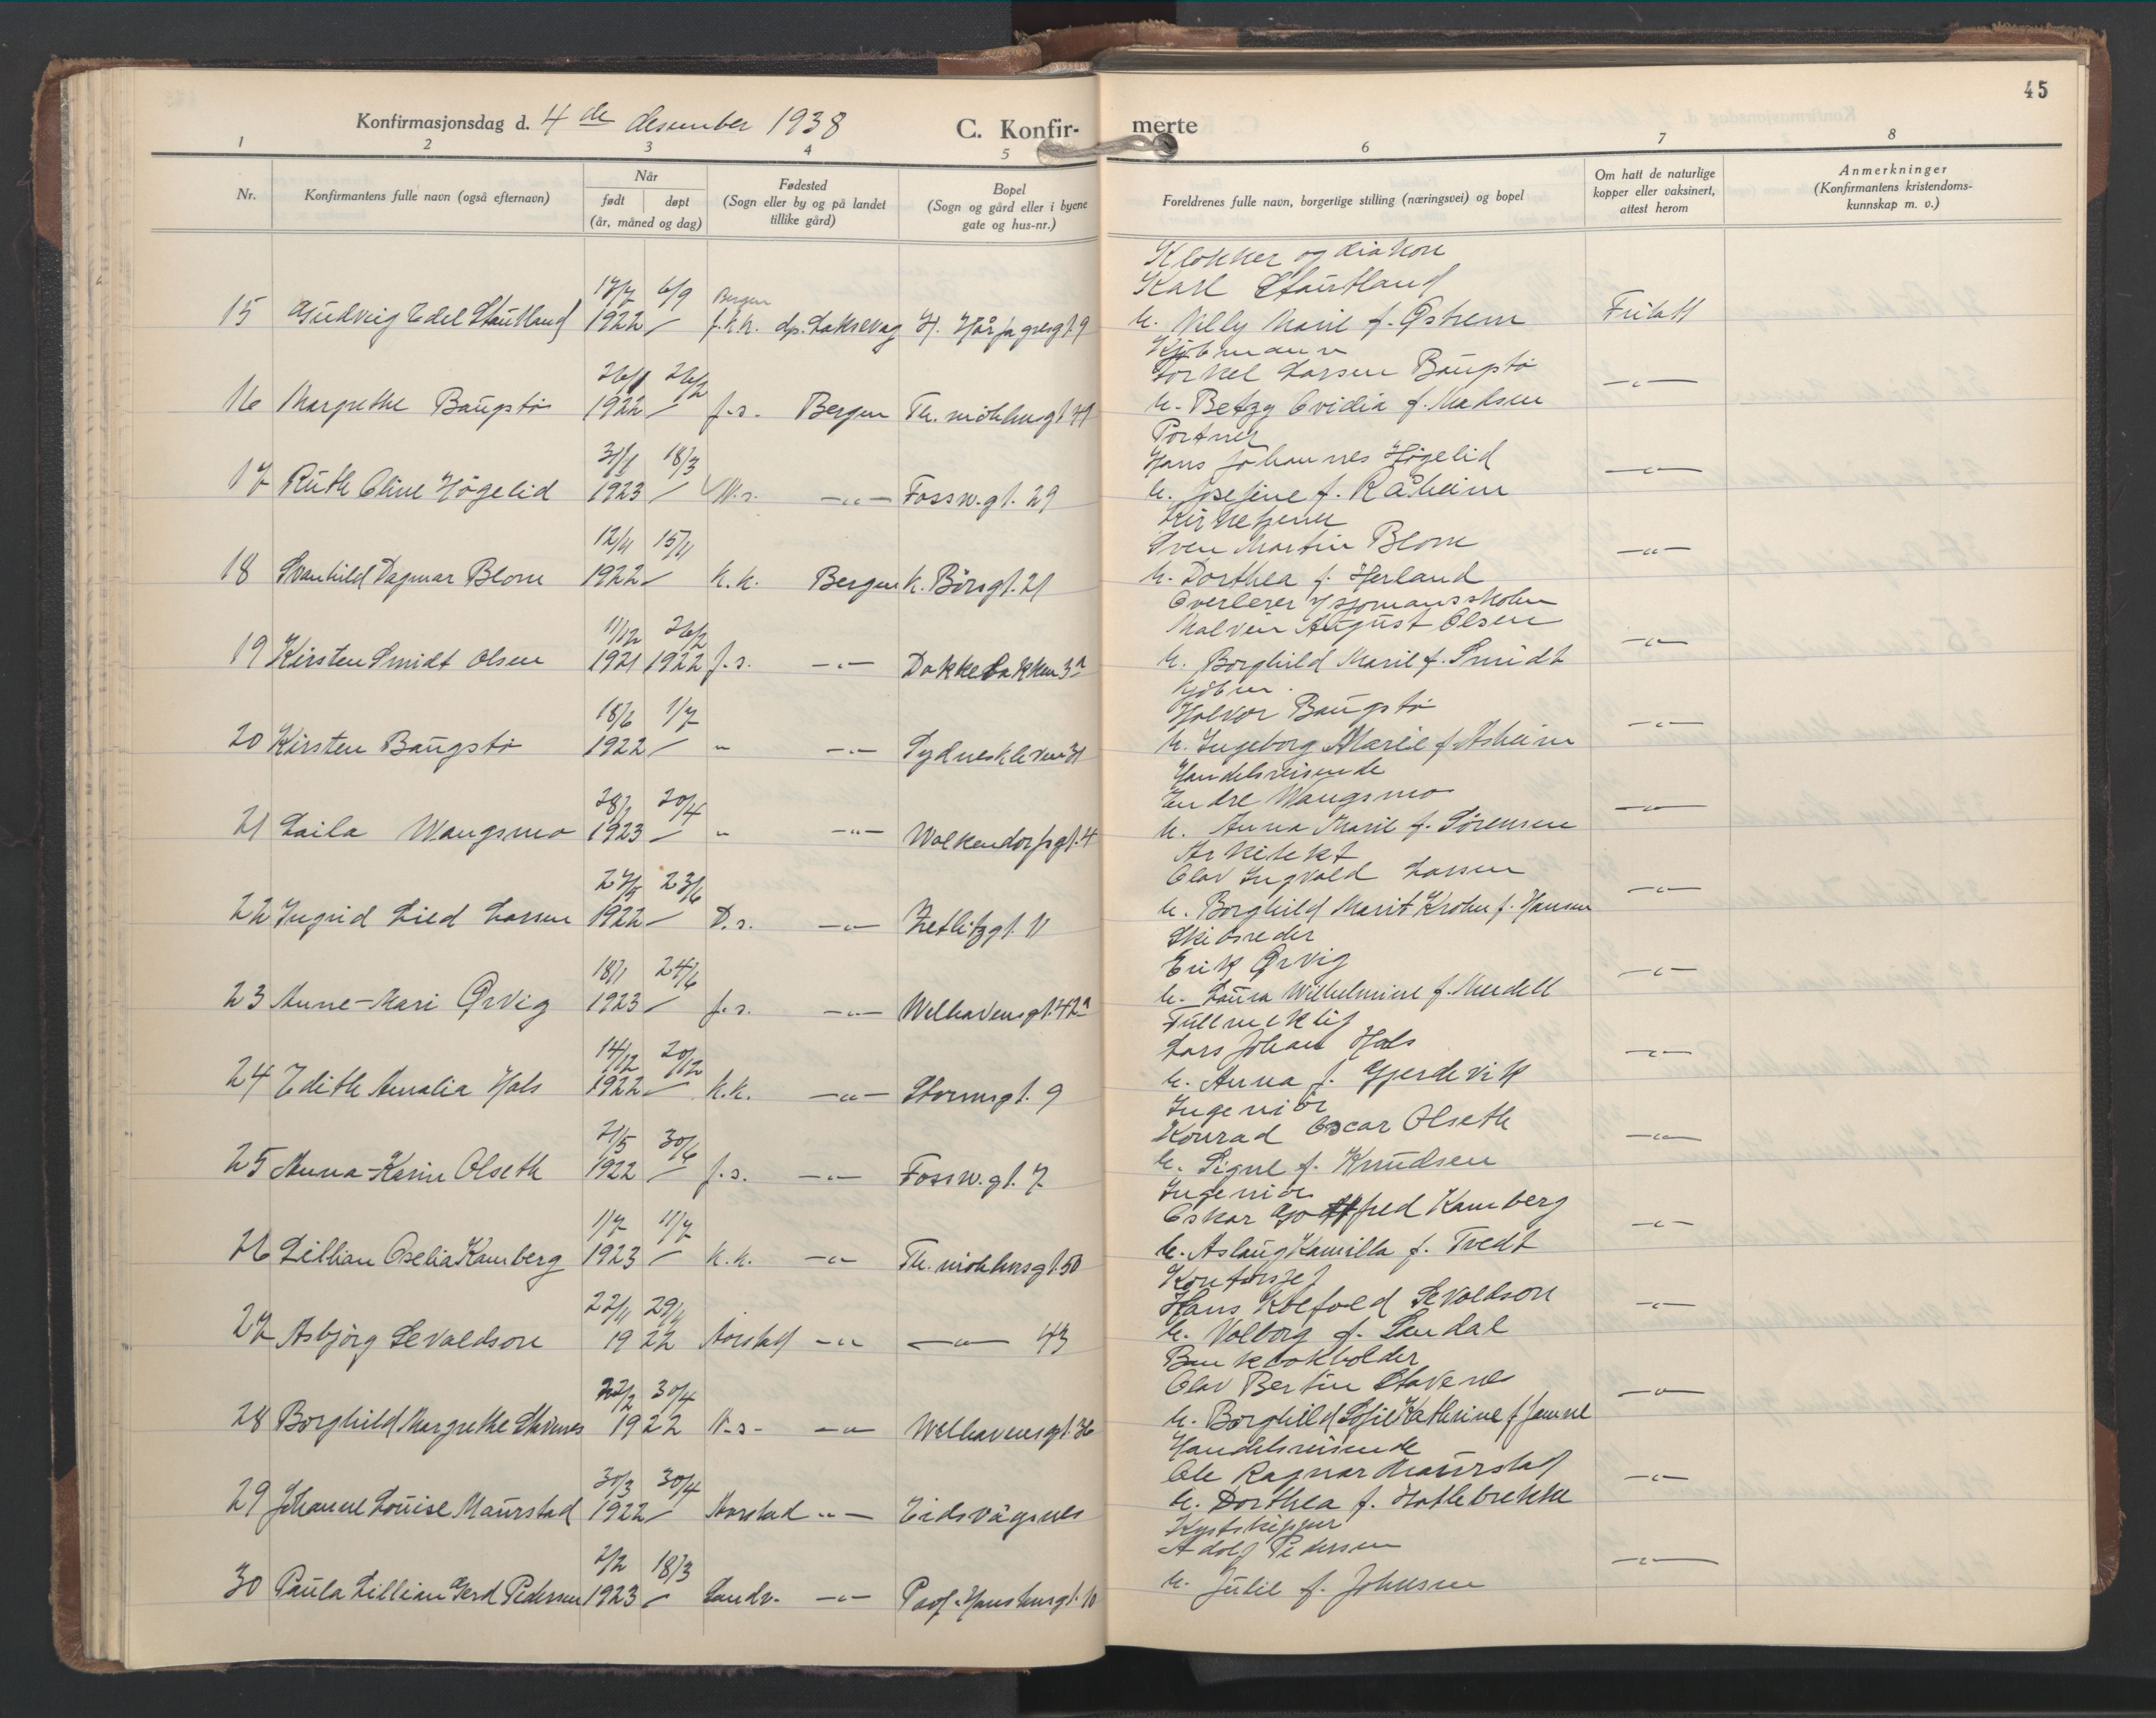 45
Konfirmasjonsdag d. 4 de desember 1938 C. Konfir- merte
1 2 3 4 5 6 7 8
Nr. Konfirmantens fulle navn (også efternavn) Når født døpt (år, måned og dag) Fødested (Sogn eller by og på landet tillike gård) Bopel (Sogn og gård eller i byene gate og hus-nr.) Foreldrenes fulle navn, borgerlige stilling (næringsvei) og bopel Om hatt de naturlige kopper eller vaksinert, attest herom Anmerkninger (Konfirmantens kristendoms-kunnskap m. v.)
Klokker og diakon
17/7 6/9 Bergen Karl Stautland
15 Gudveig Edel Stautland 1922 / f.k.k. dp. Laksevåg H. Hårfagresgt. 9 h. Nelly Marie f. Østrem
Kjøbmann
26/1 26/2 Torkel Larsen Baugstø —"—
16 Margrethe Baugstø 1922 / J.s. Bergen h. Betzy Ovidia f. Madsen
Portner
31/1 18/3 Hans Johannes Högelid —"—
17 Ruth Oline Högelid 1923 / N.s. —"— Fossw.gt. 29 h. Josefine f. Råheim
Kirketjener
12/11 15/11 Sven Martin Blom —"—
18 Svanhild Dagmar Blom 1922 / k.k. Bergen k. Börsgt. 21 h. Dorthea f. Herland
Overlerer v/ sjømannsskolen
11/12 26/2 Malvin August Olsen —"—
19 Kirsten Smidt Olsen 1921 1922 J.s. —"— Dokkebakken 3a h. Borghild Marie f. Smidt
Kjöbm.
18/6 1/7 Halvor Baugstø —"—
20 Kirsten Baugstø 1922 / " —"— Sydneskleven 31 h. Ingeborg Marie f. Asheim
Handelsreisende
20/4 Endre Wangsmo —"—
21 Laila Wangsmo 1923 / " —"— Walkendorfsgt. 4 h. Anna Marie f. Sörensen
Arkitekt
27/5 23/6 Olav Ingvald Larsen —"—
22 Ingrid Lied Larsen 1922 / D.s. —"— Zetlitzgt. 11 h. Borghild Marit Krohn f. Hansen
Skibsreder
18/1 24/6 Erik Ørvig —"—
23 Anne-Mari Ørvig 1923 / J.s. —"— Welhavensgt. 42a h. Laura Wilhelmine f. Mudell
Fullmektig
14/12 20/12 Lars Johan Hals —"—
24 Edith Amalia Hals 1922 / k.k. —"— Stormsgt. 9 h. Anna f. Gjerdevik
Ingeniör
21/5 30/6 Konrad Oscar Olseth —"—
25 Anna-Karin Olseth 1922 / J.s. —"— Fossw.gt. 7 h. Signe f. Knudsen
Ingeniör
1/7 11/7 Oskar Gottfred Kamberg —"—
26 Lillian Oselia Kamberg 1923 / k.k. —"— 50 h. Aslaug Kamilla f. Tvedt
Kontorsjef
22/11 29/11 Hans Koefoed Sevaldson —"—
27 Asbjörg Sevaldson 1922 Årstad —"— —"— 43 h. Valborg f. Sandal
Bankbokholder
22/2 30/4 Olav Bertin Stavenes —"—
28 Borghild Margrethe Stavenes 1922 N.s. —"— Welhavensgt. 36 h. Borghild Sofie Kathrine f. Jamne
Handelsreisende
30/3 30/4 Ole Ragnar Maurstad —"—
29 Johanne Louise Maurstad 1922 / Årstad —"— Eidsvågnes h. Dorthea f. Hatlebrekke
Kystskipper
2/2 18/3 Adolf Pedersen —"—
30 Paula Lillian Gerd Pedersen 1923 / Sandv. —"— Prof. Hansteensgt. 10 h. Julie f. Johnsen